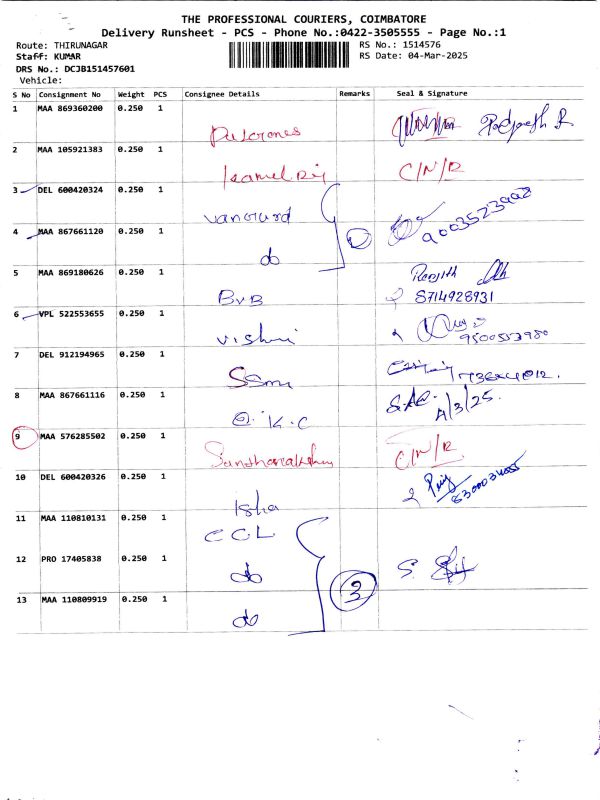 THE PROFESSIONAL COURIERS, COIMBATORE
Delivery Runsheet - PCS - Phone No.:0422-3505555 - Page No.:1
Route: THIRUNAGAR RS No.: 1514576
Staff: KUMAR RS Date: 04-Mar-2025
DRS No.: DCJB151457601
Vehicle:
S No Consignment No Weight PCS Consignee Details Remarks Seal & Signature
1 MAA 869360200 0.250 1
2 MAA 105921383 0.250 1 C/N/R
3 DEL 600420324 0.250 1 vanguard 9003523902
4 MAA 867661120 0.250 1 do
5 MAA 869180626 0.250 1 BVB Ranjith 8714928931
6 VPL 522553655 0.250 1 vishnu
7 DEL 912194965 0.250 1 SSmu
8 MAA 867661116 0.250 1 O.K.C 4/3/25.
9 MAA 576285502 0.250 1 C/N/R
10 DEL 600420326 0.250 1 Isha
11 MAA 110810131 0.250 1 CCL
12 PRO 17405838 0.250 1 do 3 S.
13 MAA 110809919 0.250 1 do